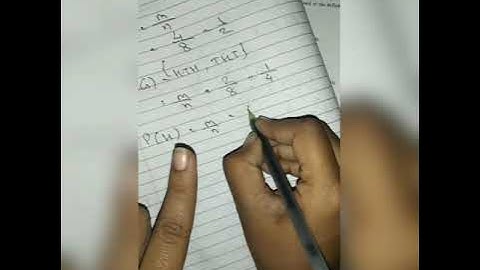 = m/n
= 4/8 = 1/2
G) = {HTH, THT}
= m/n = 2/8 = 1/4
P(H) = m/n =